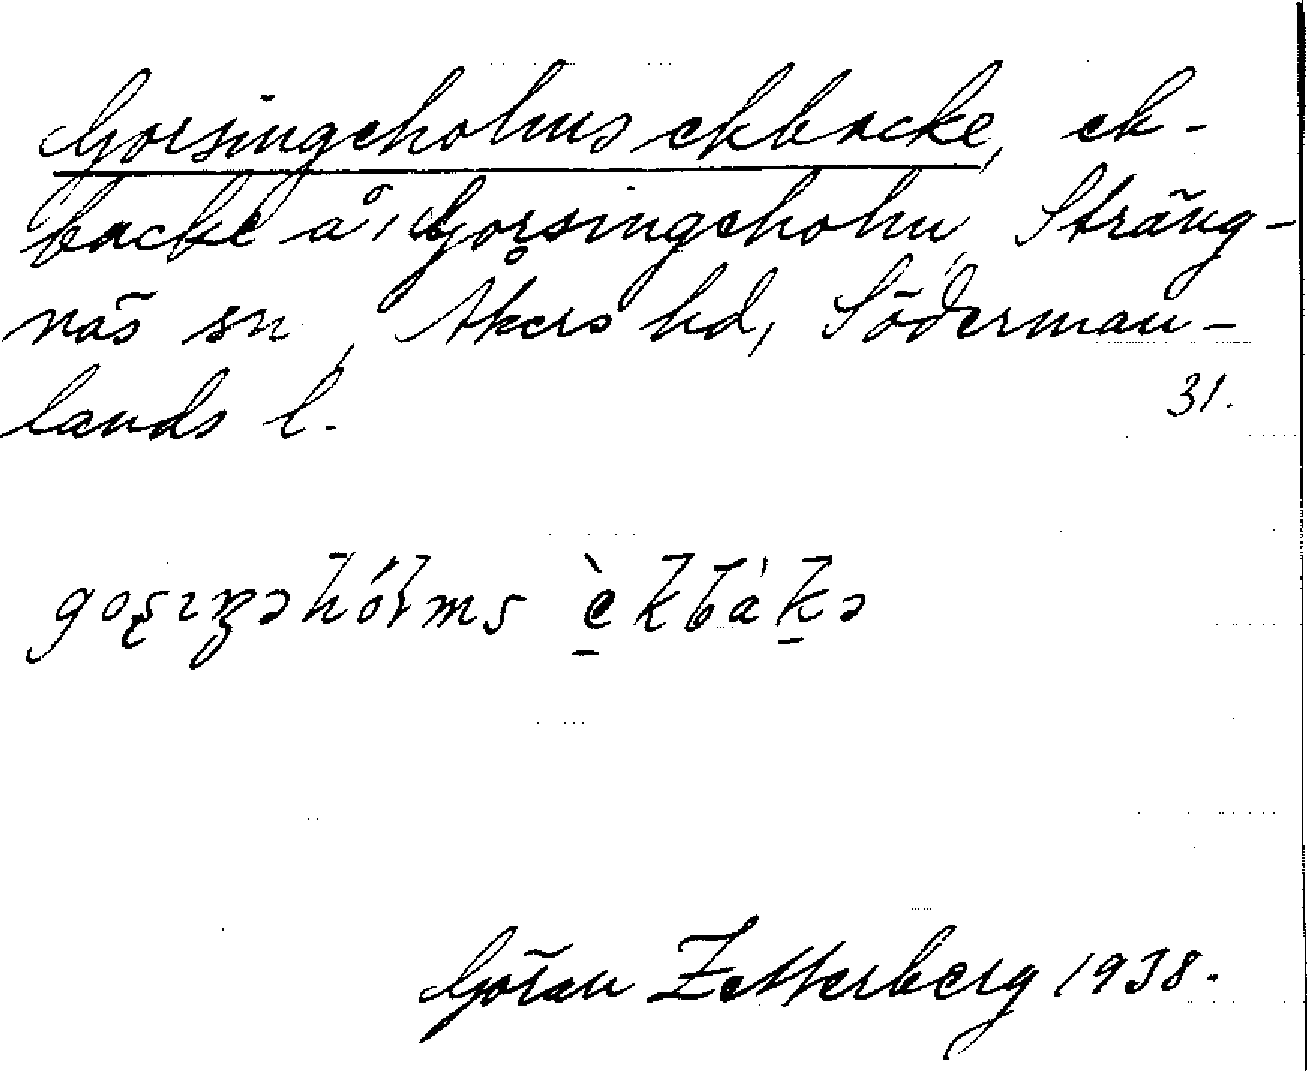 Gorsingeholms ekbacke, ek-
backe å Gorsingeholm, Sträng-
näs sn, Åkers hd, Söderman-
lands l.
31.
Göran Zetterberg 1938.